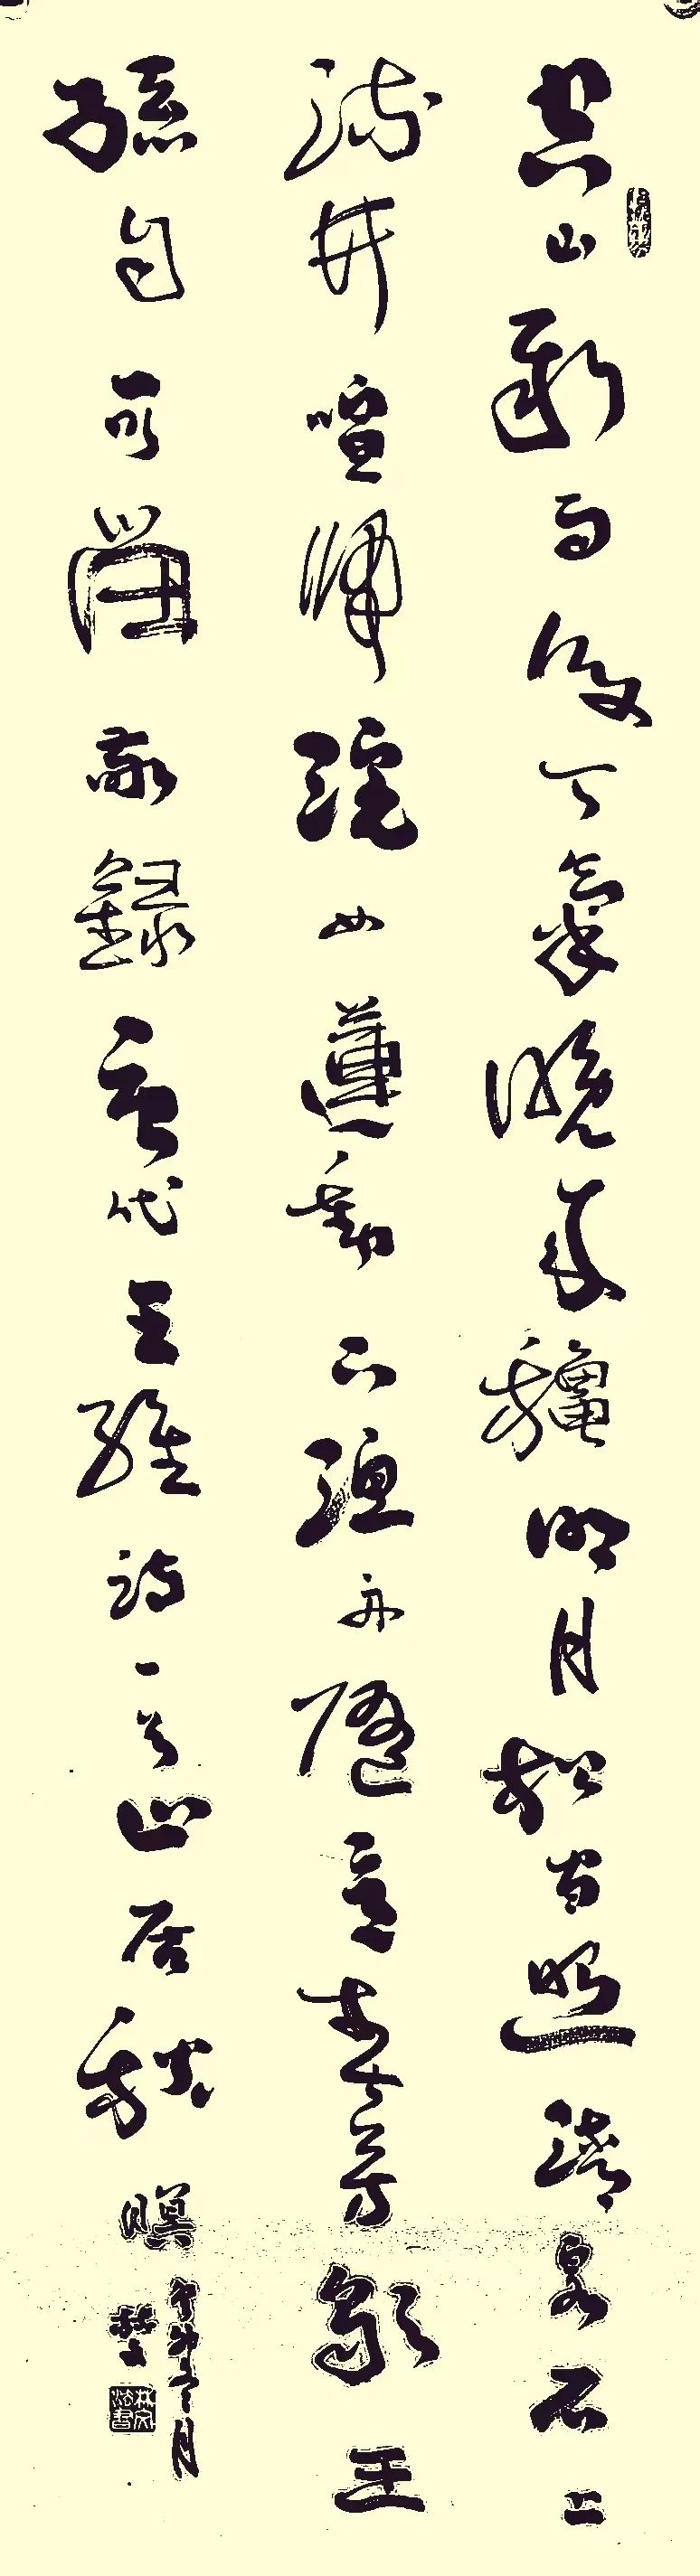 空山新雨後天氣晚來穐明月松間照清泉石上
流竹喧歸浣女蓮動下漁舟隨意春芳歇王
孫自可留敬錄唐代王維詩一首山居秋暝
卯冬月
林文